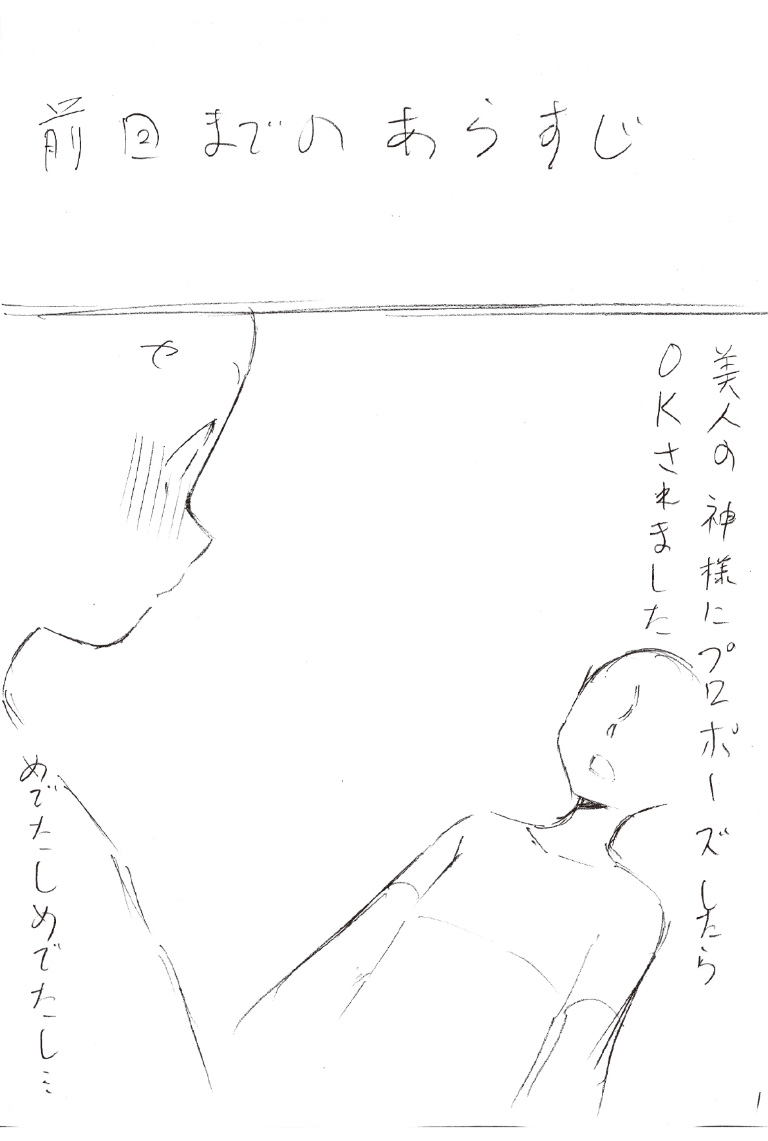 前回までのあらすじ
美人の神様にプロポーズしたら
OKされました
や
めでたしめでたし…
1